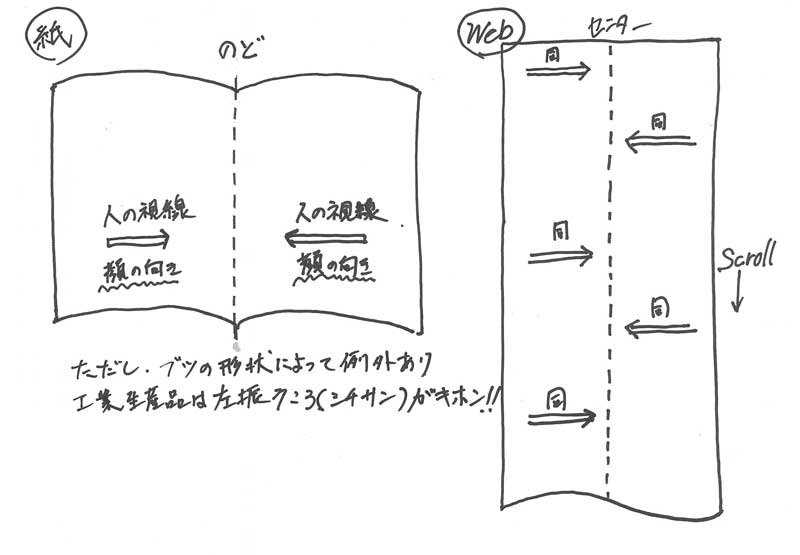 紙
のど
人の視線
顔の向き
人の視線
顔の向き
ただし、ブツの形状によって例外あり
工業生産品は左振り(シチサン)がキホン!!
Web
センター
同
同
同
同
同
Scroll